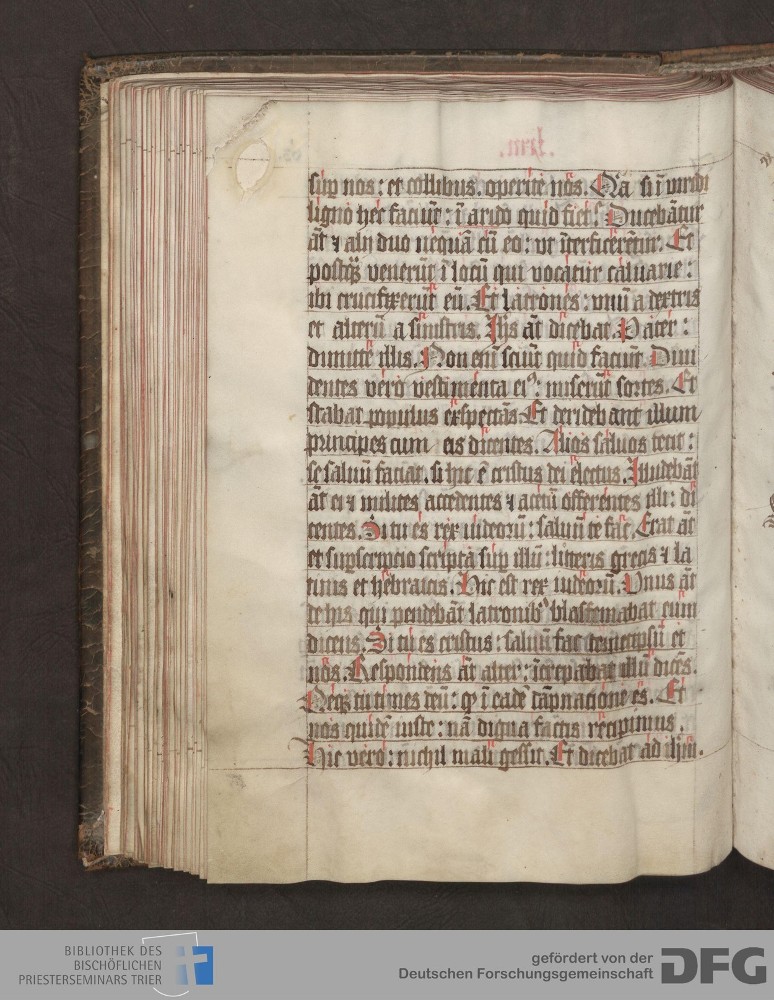 .lxxii.
sup nos: et collibus. operite nos. Quia si ī viridi
ligno hec faciūt: ī arido quid fiet? Ducebātur
āt ⁊ alii duo nequā cū eo: vt īterficerētur. Et
postq̄ȝ venerūt ī locū qui vocatur caluarie:
ibi crucifixerūt eū. Et latrones: vnū a dextris
et alterū a sinistris. Ihs āt dicebat. Pater:
dimitte illis. Non enī sciūt quid faciūt. Diui
dentes vero vestimenta eiꝰ: miserūt sortes. Et
stabat populus exspectās. Et deridebant illum
principes cum eis dicentes. Alios saluos fecit:
se saluū faciat. si hic ē cristus dei electus. Illudebāt
āt ei ⁊ milites accedentes ⁊ acetū offerentes illi: di
centes. Si tu es rex iudeorū: saluū te fac. Erat āt
et supscripcio scripta sup illū: litteris grecis ⁊ la
tinis et hebraicis. Hic est rex iudeorū. Vnus āt
de his qui pendebāt latronibꝰ blasfemabat eum
dicens. Si tu es cristus: saluū fac temetipsū et
nos. Respondens āt alter: īcrepabat illū dicēs.
Neqȝ tu times deū: qꝛ ī eadē dāpnacione es. Et
nos quidē iuste: nā digna factis recipimus.
Hic vero: nichil mali gessit. Et dicebat ad ihm̄.
BIBLIOTHEK DES
BISCHÖFLICHEN
PRIESTERSEMINARS TRIER
gefördert von der
Deutschen Forschungsgemeinschaft
DFG